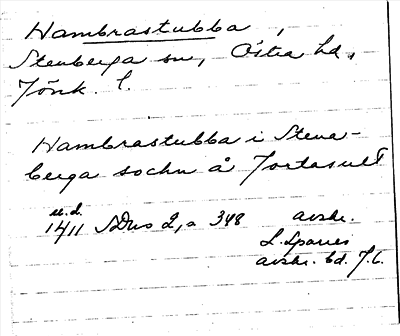 Hambrastubba,
Stenberga sn, Östra hd,
Jönk. l.
Hambrastubba i Stena-
berga sochn å
u.d.
1411 SDns 2, a 348 avskr.
L. Sparres
avskr. bd. J.l.